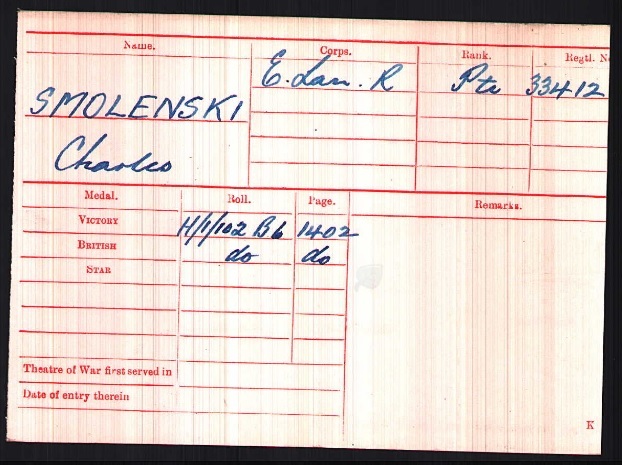 Name. Corps. Rank. Regtl. No
E. Lan. R Pte 33412
SMOLENSKI
Charles
Medal. Roll. Page. Remarks.
VICTORY H/1/102 B6 1402
BRITISH do do
STAR
Theatre of War first served in
Date of entry therein
K